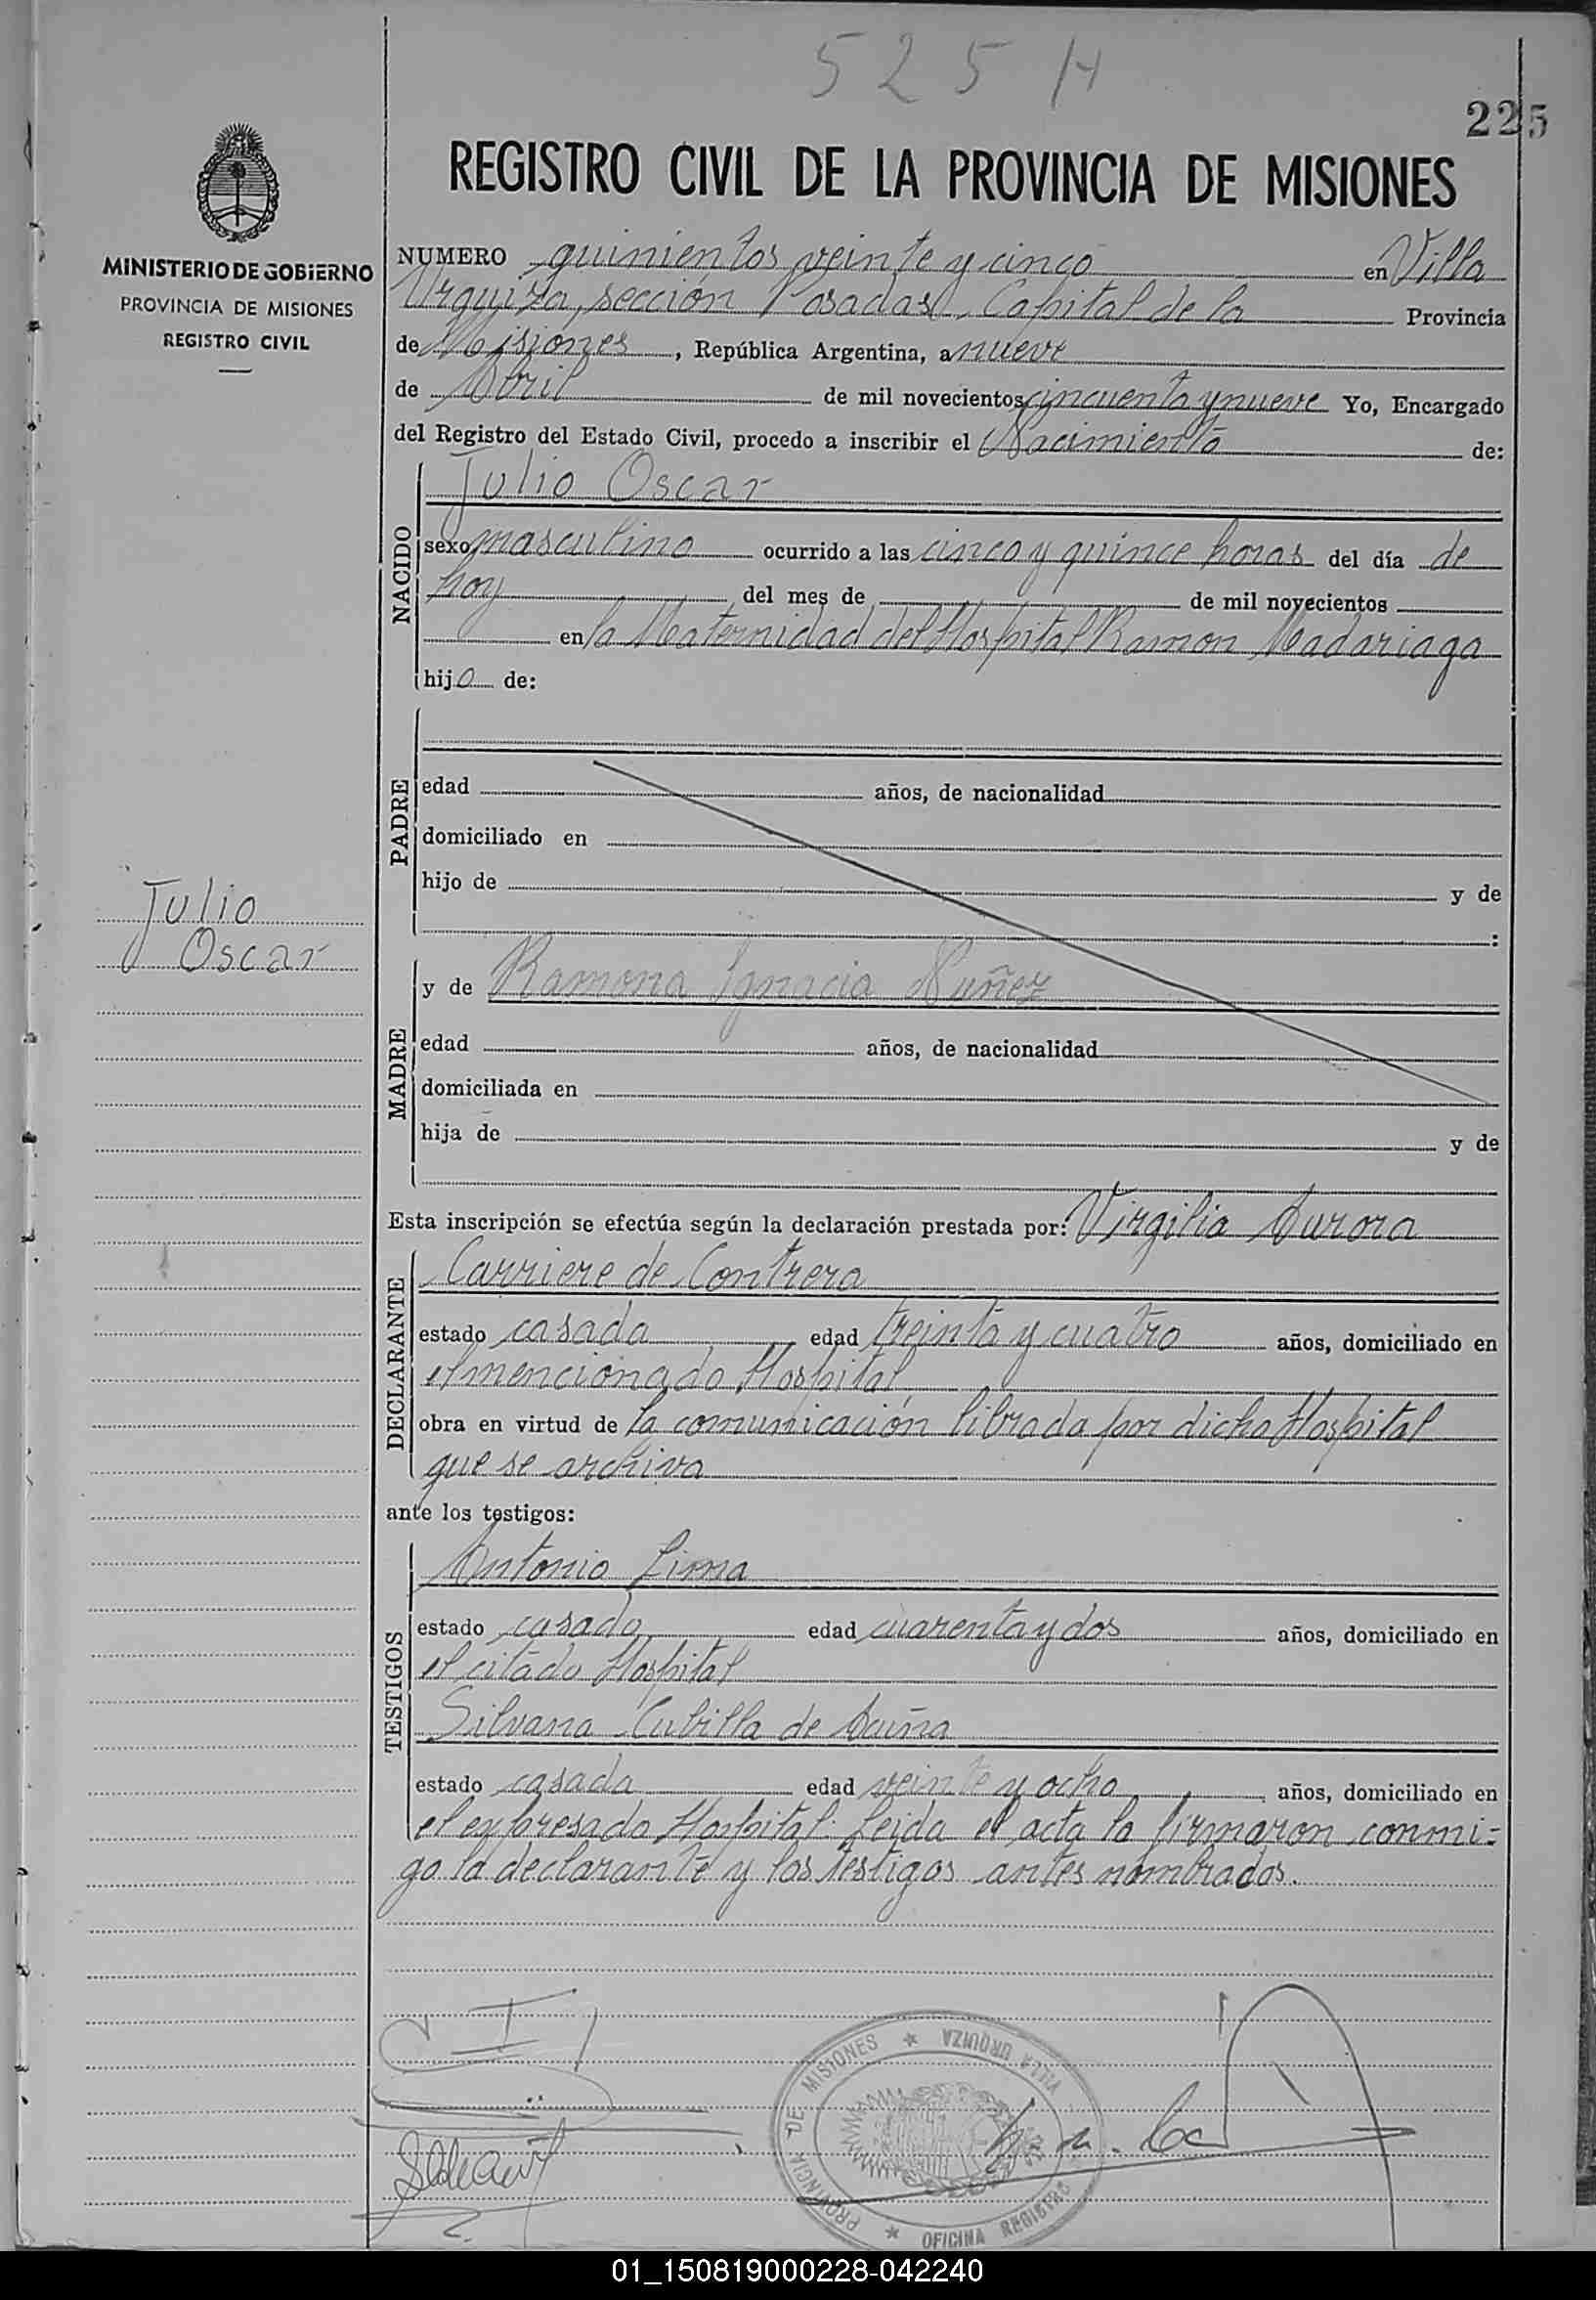 525 H
225
REGISTRO CIVIL DE LA PROVINCIA DE MISIONES
MINISTERIO DE GOBIERNO
PROVINCIA DE MISIONES
REGISTRO CIVIL
NUMERO quinientos veinte y cinco en Villa
Urquiza, sección Posadas, Capital de la Provincia
de Misiones, República Argentina, a nueve
de Abril de mil novecientos cincuenta y nueve Yo, Encargado
del Registro del Estado Civil, procedo a inscribir el Nacimiento de:
NACIDO
Julio Oscar
sexo masculino ocurrido a las cinco y quince horas del día de
hoy del mes de de mil novecientos
en la Maternidad del Hospital Ramon Madariaga
hijo de:
PADRE
edad años, de nacionalidad
domiciliado en
hijo de y de
:
Julio
Oscar
MADRE
y de Ramona Ignacia Nuñez
edad años, de nacionalidad
domiciliada en
hija de y de
Esta inscripción se efectúa según la declaración prestada por: Virgilia Aurora
DECLARANTE
Carriere de Contrera
estado casada edad treinta y cuatro años, domiciliado en
el mencionado Hospital
obra en virtud de la comunicación librada por dicho Hospital
que se archiva
ante los testigos:
TESTIGOS
Antonio Lima
estado casado edad cuarenta y dos años, domiciliado en
el citado Hospital
Silvana Cubilla de Acuña
estado casada edad veinte y ocho años, domiciliado en
el expresado Hospital. Leida el acta la firmaron conmi=
go la declarante y los testigos antes nombrados.
PROVINCIA DE MISIONES ★ VILLA URQUIZA
★ OFICINA REGISTRO
01_150819000228-042240